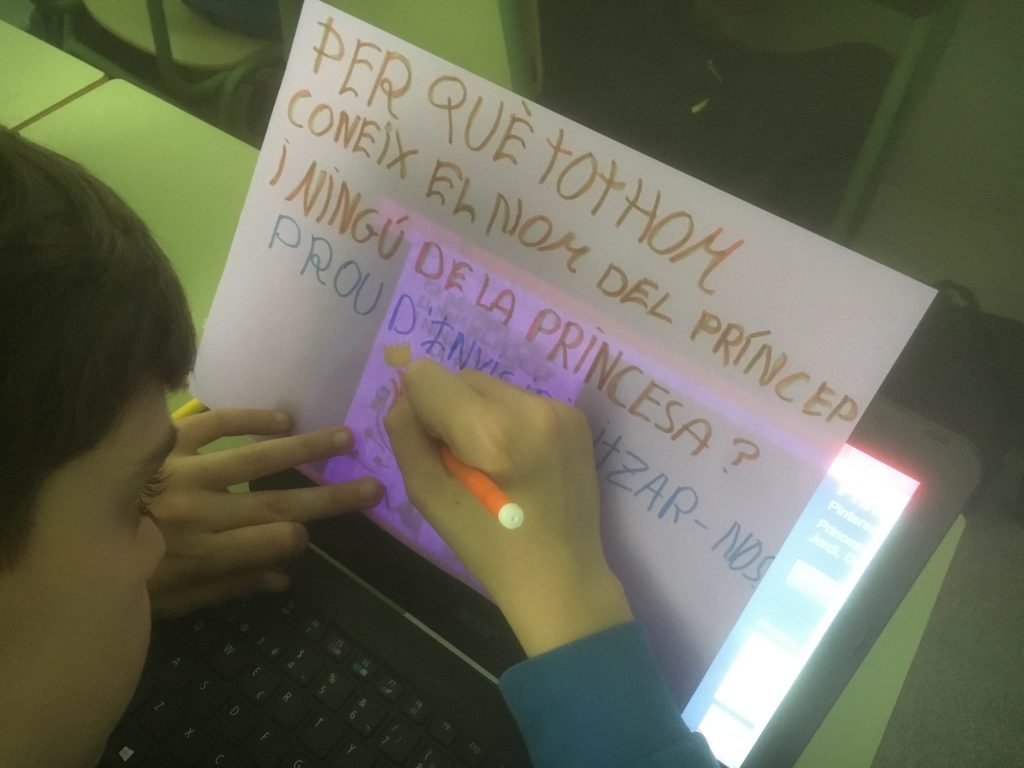 PER QUÈ TOTHOM
CONEIX EL NOM DEL PRÍNCEP
I NINGÚ DE LA PRINCESA?
PROU D'INVISIBILITZAR-NOS!
Pinteres
Princesa
Jordi. D